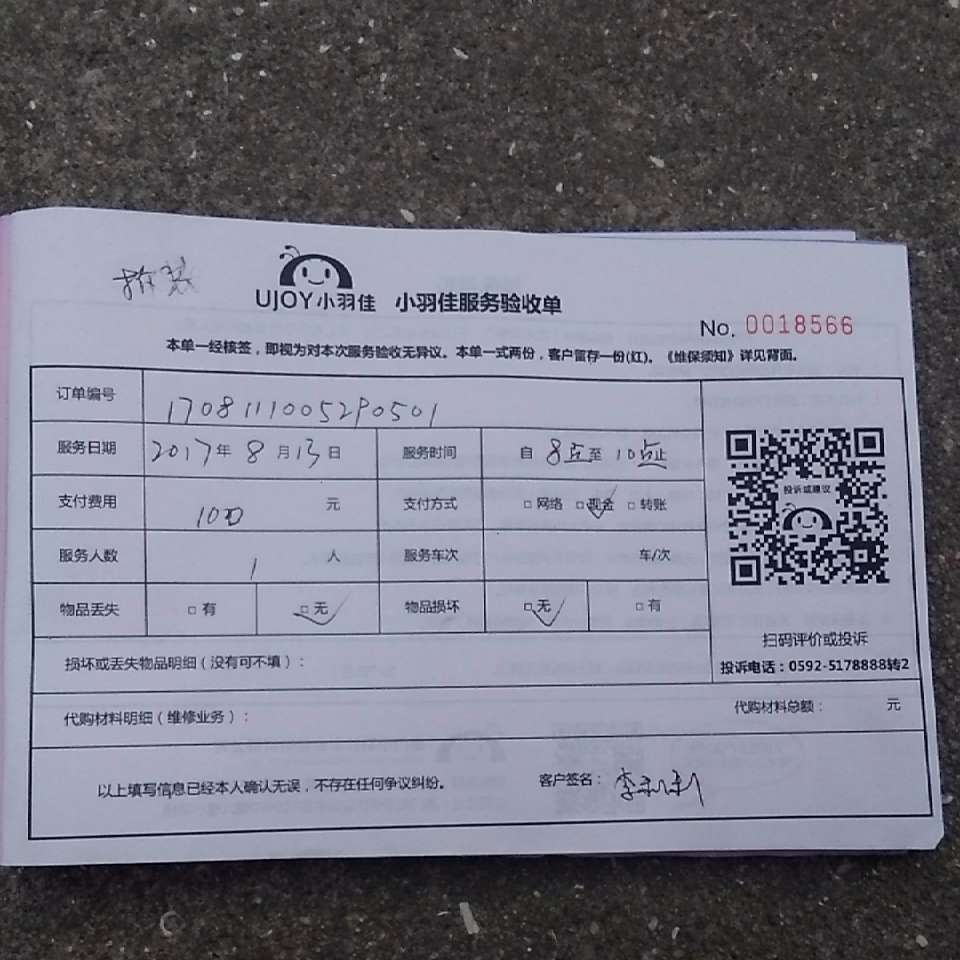 UJOY小羽佳 小羽佳服务验收单
No. 0018566
本单一经核签，即视为对本次服务验收无异议。本单一式两份，客户留存一份(红)。《维保须知》详见背面。
订单编号 1708111005290501
服务日期 2017年8月13日 服务时间 自 8点至 10点止
支付费用 100 元 支付方式 □网络 □现金 □转账
服务人数 1 人 服务车次 车/次
物品丢失 □有 □无 物品损坏 □无 □有
投诉或建议
扫码评价或投诉
投诉电话：0592-5178888转2
损坏或丢失物品明细（没有可不填）：
代购材料明细（维修业务）： 代购材料总额： 元
以上填写信息已经本人确认无误，不存在任何争议纠纷。 客户签名：